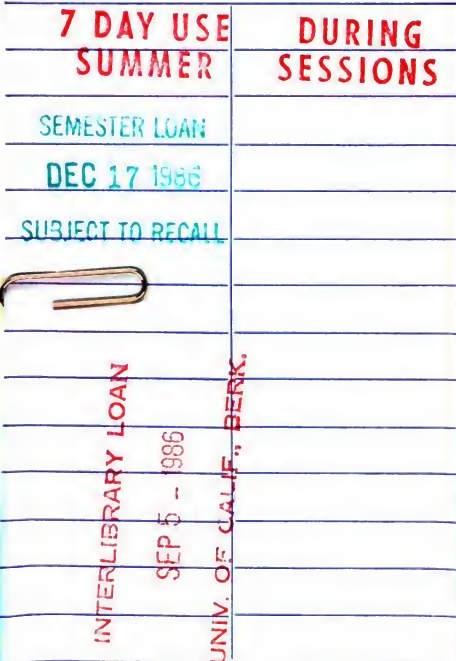 7 DAY USE DURING
SUMMER SESSIONS
SEMESTER LOAN
DEC 17 1986
SUBJECT TO RECALL
INTERLIBRARY LOAN
SEP 5 - 1986
UNIV. OF CALIF., BERK.